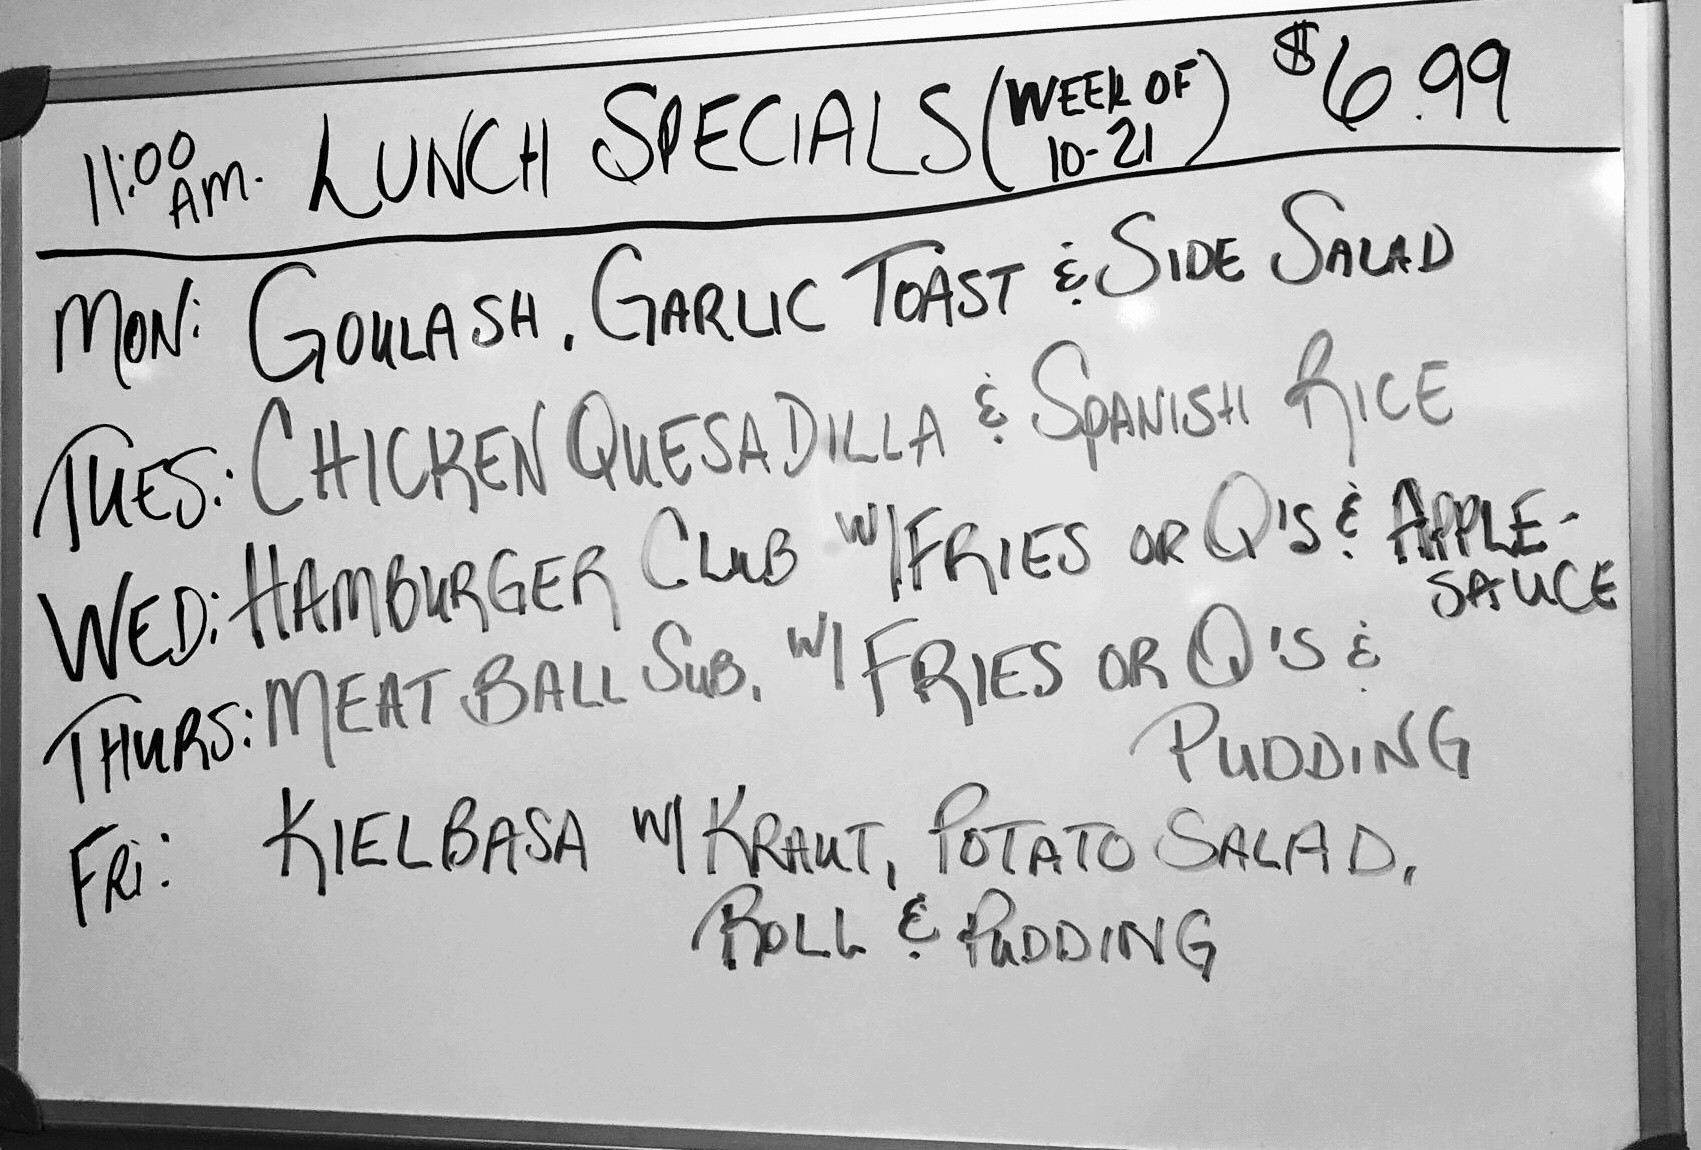 11:00 AM. LUNCH SPECIALS (WEEK OF 10-21) $6.99
MON: GOULASH, GARLIC TOAST & SIDE SALAD
TUES: CHICKEN QUESADILLA & SPANISH RICE
WED: HAMBURGER CLUB W/FRIES OR Q'S & APPLE-
SAUCE
THURS: MEAT BALL SUB. W/ FRIES OR Q'S &
PUDDING
FRI: KIELBASA W/ KRAUT, POTATO SALAD,
ROLL & PUDDING